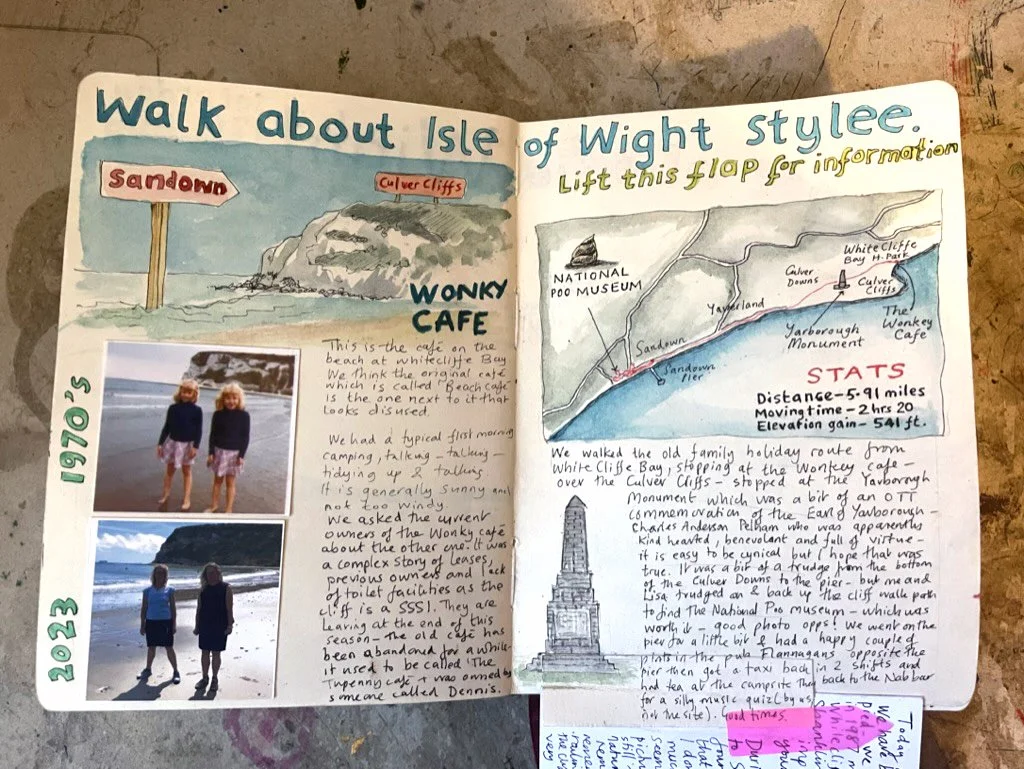 Walk about Isle of Wight Stylee.
Lift this flap for information
Sandown
Culver Cliffs
WONKY
CAFE
1970's
2023
This is the café on the
beach at whitecliffe Bay
We think the original café
which is called 'Beach café'
is the one next to it that
looks disused.
We had a typical first morning
camping, talking - talking -
tidying up & talking
It is generally sunny and
not too windy.
We asked the current
owners of the Wonky café
about the other one. It was
a complex story of leases,
previous owners and lack
of toilet facilities as the
cliff is a SSSI. They are
leaving at the end of this
season - the old café has
been abandoned for a while
it used to be called 'The
Tupenny café' & was owned by
someone called Dennis.
NATIONAL
POO MUSEUM
White Cliffe
Bay H. Park
Culver
Downs
Culver
Cliffs
Yaverland
The
Wonkey
Cafe
Yarborough
Monument
Sandown
Sandown
Pier
STATS
Distance - 5.91 miles
Moving time - 2 hrs 20
Elevation gain - 541 ft.
We walked the old family holiday route from
White Cliffe Bay, stopping at the Wonkey cafe -
over the Culver Cliffs - stopped at the Yarborough
Monument which was a bit of an OTT
commemoration of the Earl of Yarborough -
Charles Anderson Pelham who was apparently
kind hearted, benevolent and full of virtue -
it is easy to be cynical but I hope that was
true. It was a bit of a trudge from the bottom
of the Culver Downs to the pier - but me and
Lisa trudged on & back up the cliff walk path
to find the National Poo museum - which was
worth it - good photo opps! We went on the
pier for a little bit & had a happy couple of
pints in the pub Flannagans opposite the
pier then got a taxi back in 2 shifts and
had tea at the campsite then back to the Nab bar
for a silly music quiz (by us
not the site). Good times.
Today
We have
we
in 1987
your
that